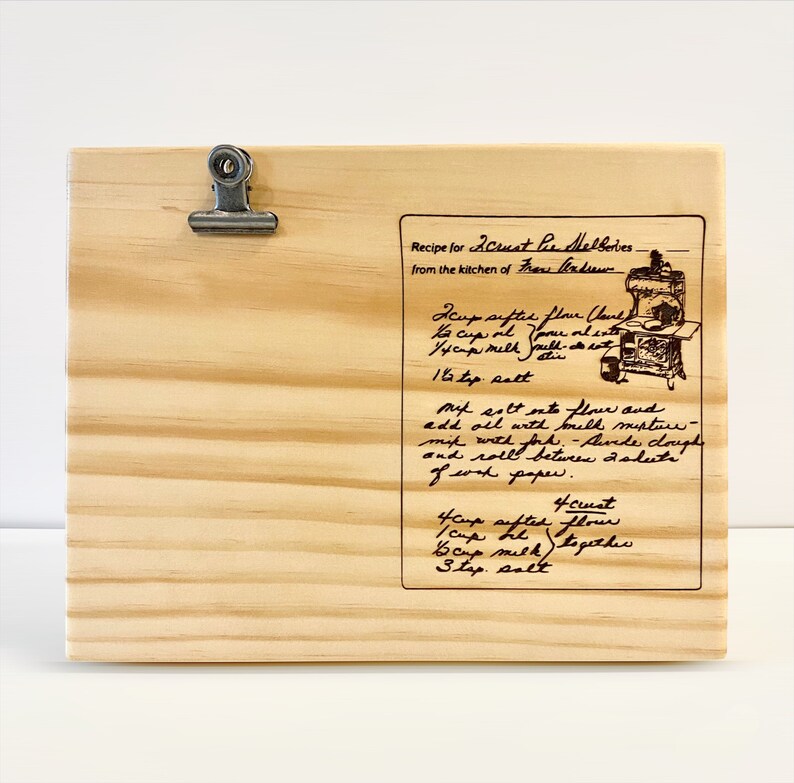 Recipe for 2 Crust Pie Shell Serves
from the kitchen of Fran Andrew
2 cup sifted flour (level)
1/2 cup oil } pour oil into
1/4 cup milk } milk - do not
stir
1 1/2 tsp. salt
Mix salt into flour and
add oil with milk mixture -
mix with fork. - Divide dough
and roll between 2 sheets
of wax paper.
4 crust
4 cup sifted flour
1 cup oil
1/2 cup milk } together
3 tsp. salt